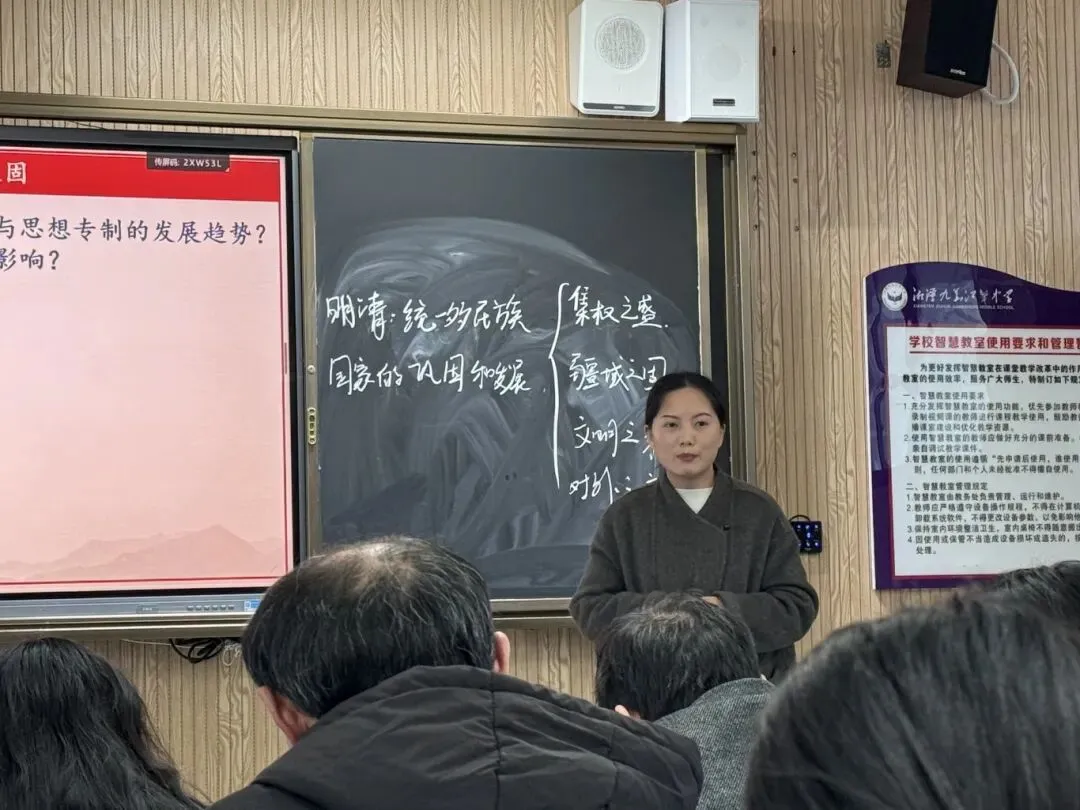 传屏码: 2XW53L
固
与思想专制的发展趋势？
影响？
明清：统一多民族
国家的巩固和发展
集权之盛.
疆域之固
文明之
对外
湘潭九华江声中学
学校智慧教室使用要求和管理
为更好发挥智慧教室在课堂教学改革中的作用
教室的使用效率，服务广大师生，特制订如下规
一、智慧教室使用要求
1.充分发挥智慧教室的使用功能，优先参加教师
录制视频课的教师进行课程教学使用，鼓励教
播课室建设和优化教学资源。
2.使用智慧教室的教师应做好充分的课前准备，
亲自调试教学课件。
3.智慧教室的使用遵循“先申请后使用，谁使用
则，任何部门和个人未经批准不得擅自使用。
二、智慧教室管理规定
1.智慧教室由教务处负责管理、运行和维护。
2.教师应严格遵守设备操作规程，不得在计算机
卸载系统软件，不得更改设备参数，以免影响
3.保持室内环境整洁卫生，室内桌椅不得随意搬
4.因使用或保管不当造成设备损坏或遗失的，
处理。